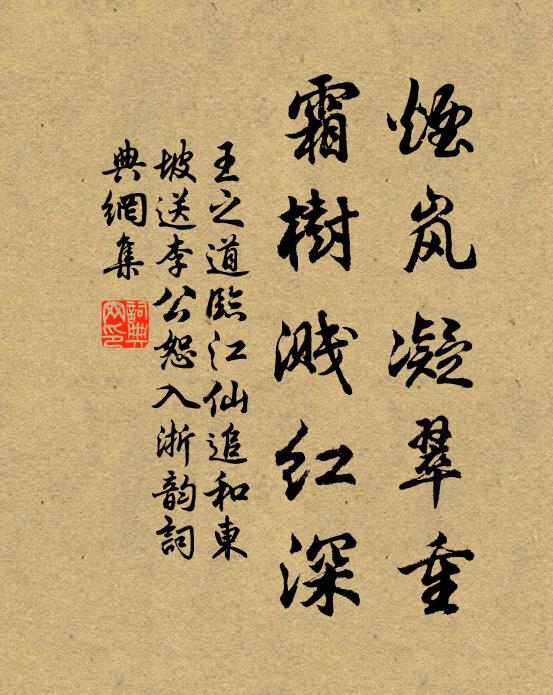 煙岚凝翠重
霜樹溅红深
王之道臨江仙追和東
坡送李公恕入浙韵詞
典網集
詞典网印